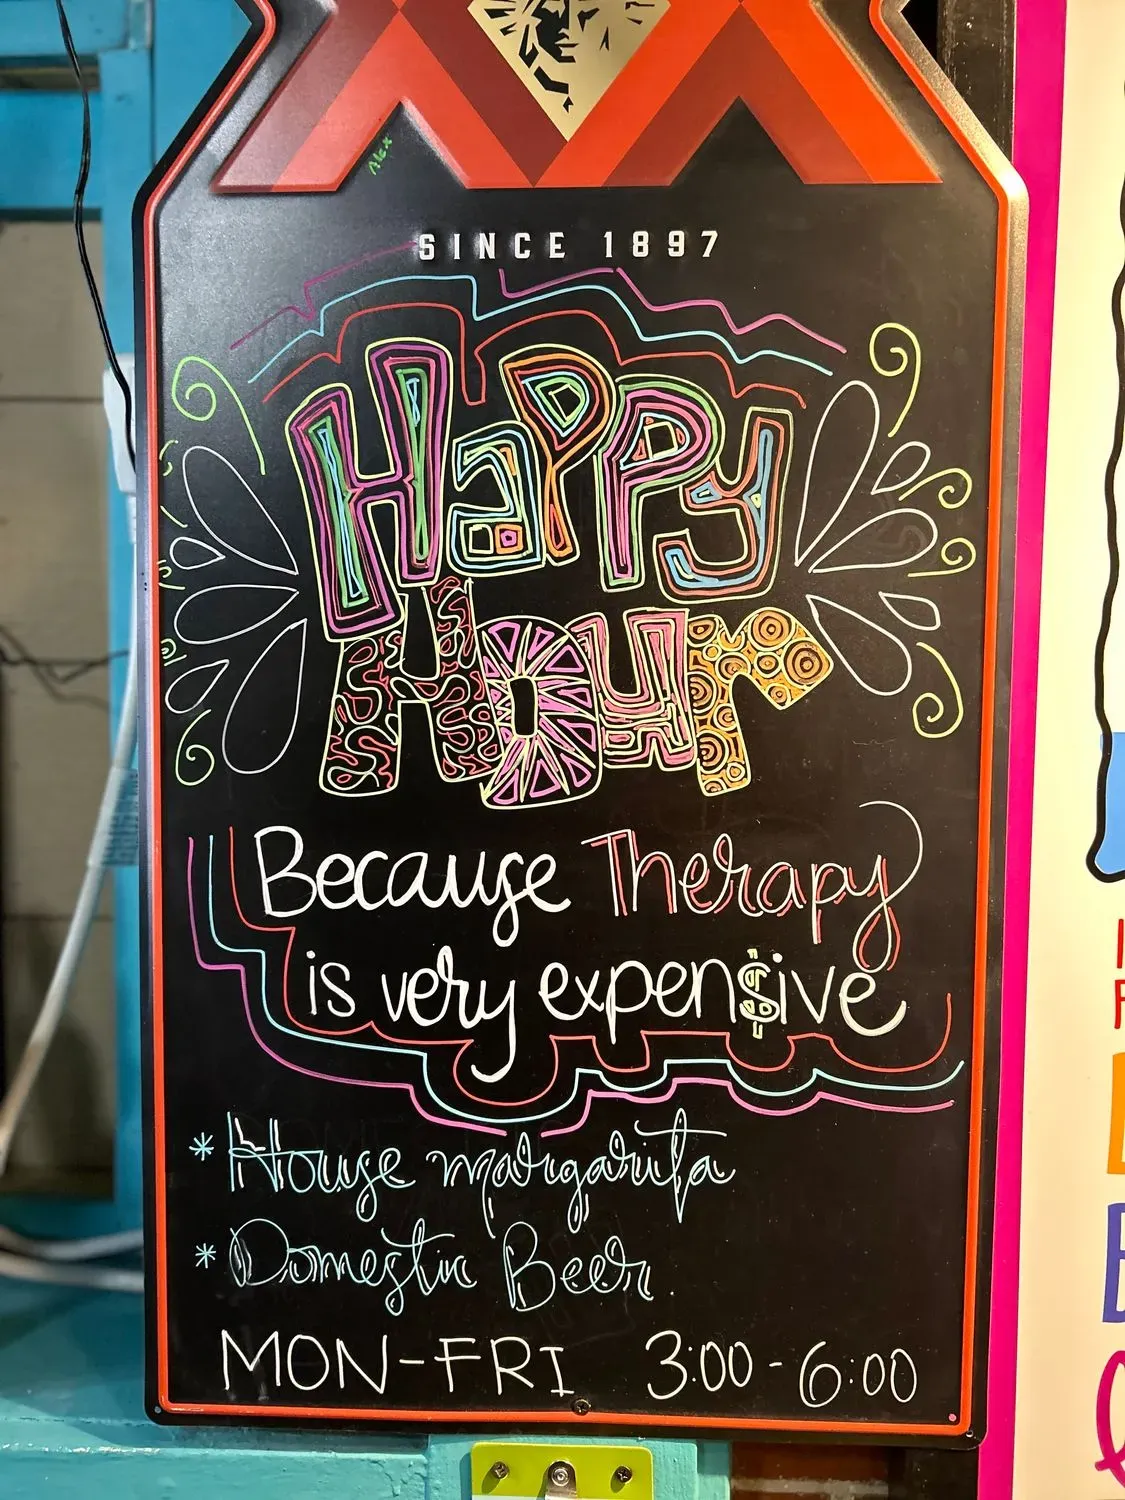 XX
Alex
SINCE 1897
Happy
Hour
Because Therapy
is very expen$ive
* House margarita
* Domestic Beer.
MON-FRI 3:00 - 6:00